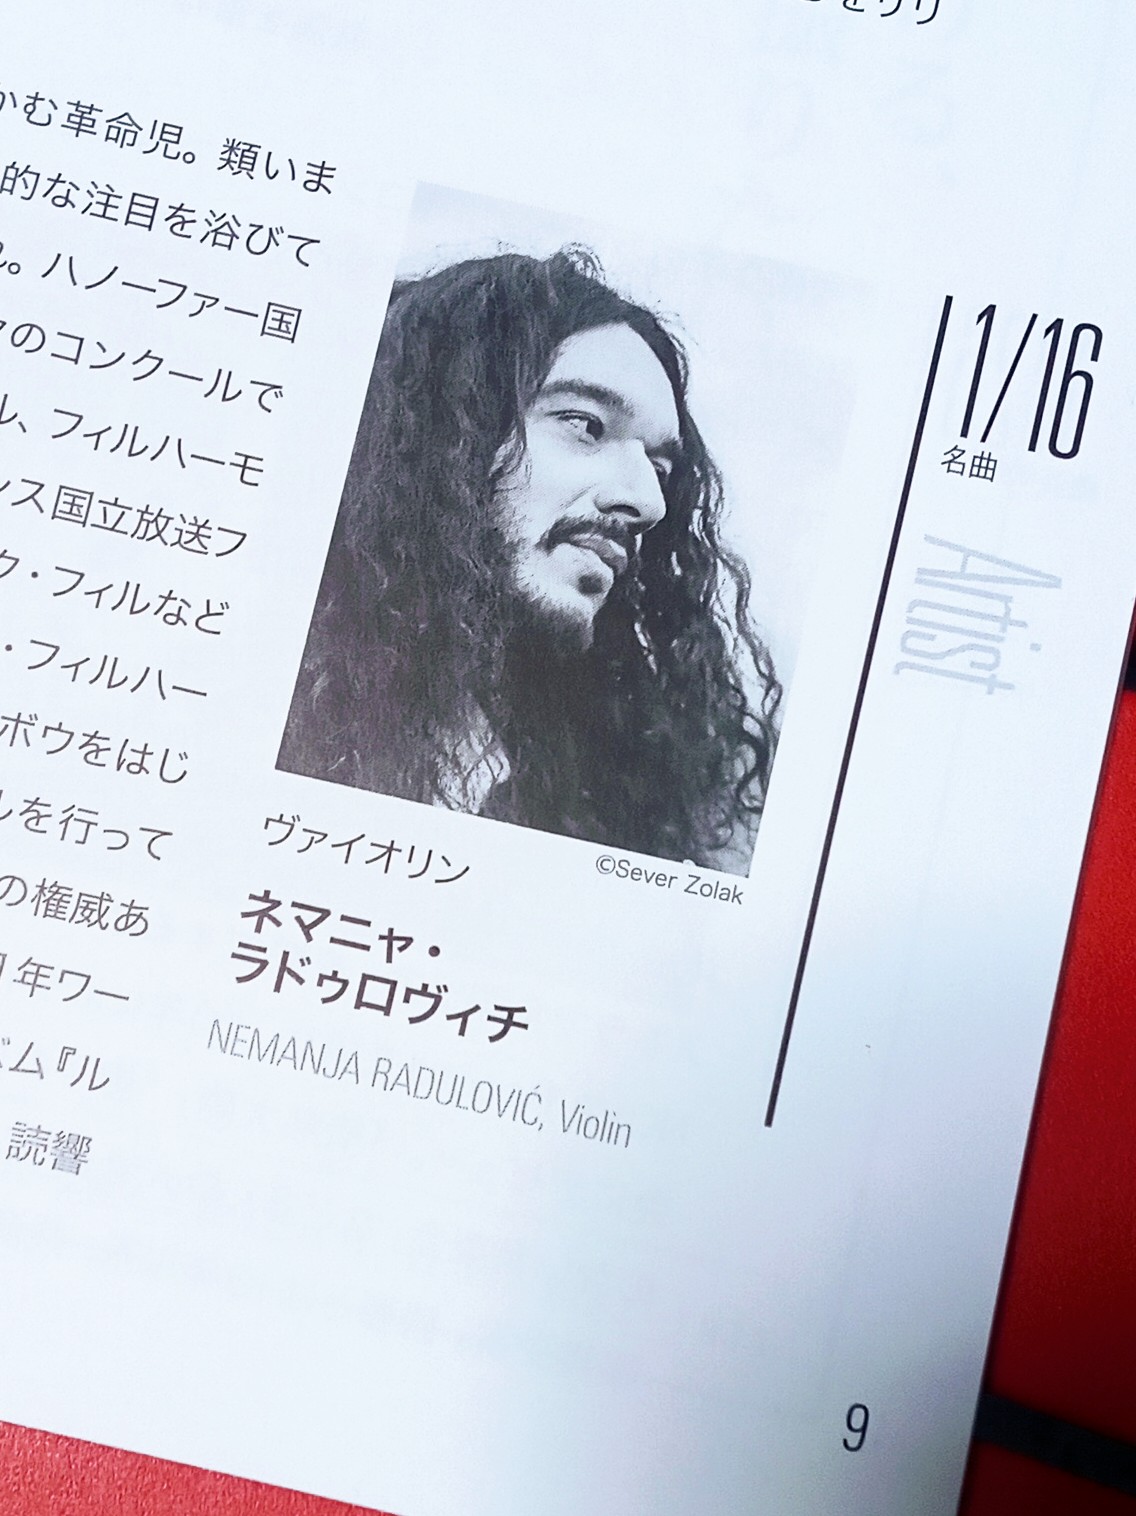 をリリ
かむ革命児。類いま
的な注目を浴びて
。ハノーファー国
のコンクールで
ル、フィルハーモ
ンス国立放送フ
ク・フィルなど
・フィルハー
ボウをはじ
しを行って
の権威あ
1年ワー
バム『ル
読響
1/16
名曲
Artist
©Sever Zolak
ヴァイオリン
ネマニャ・
ラドゥロヴィチ
NEMANJA RADULOVIĆ, Violin
9